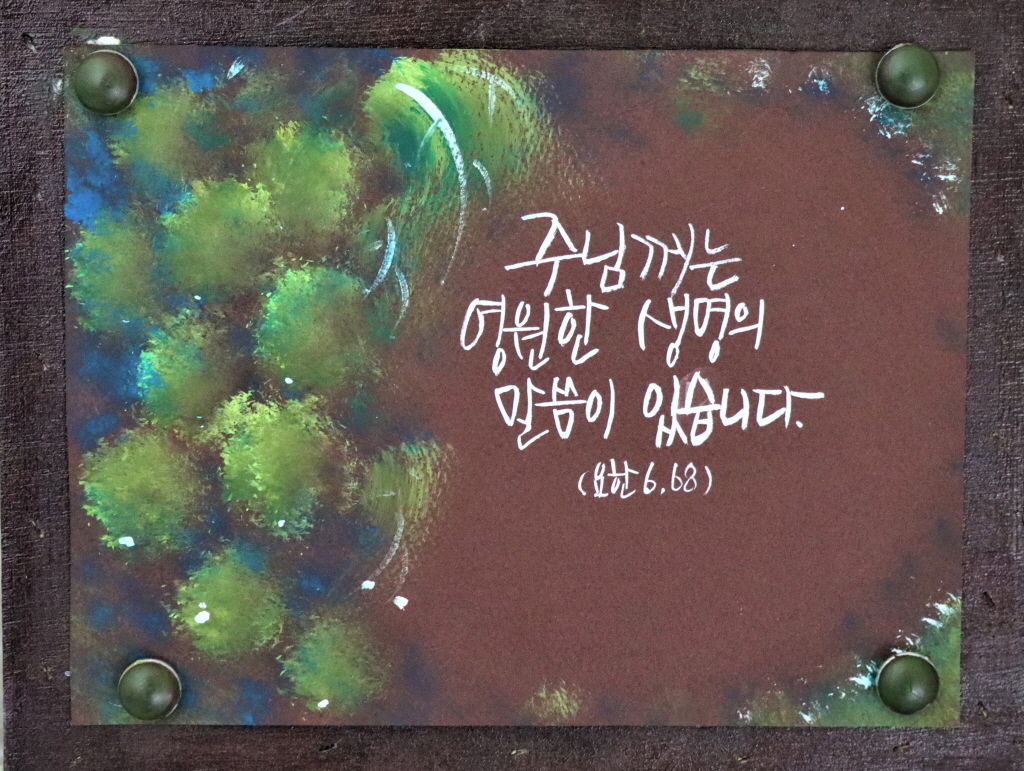 주님께는
영원한 생명의
말씀이 있습니다.
(요한 6,68)